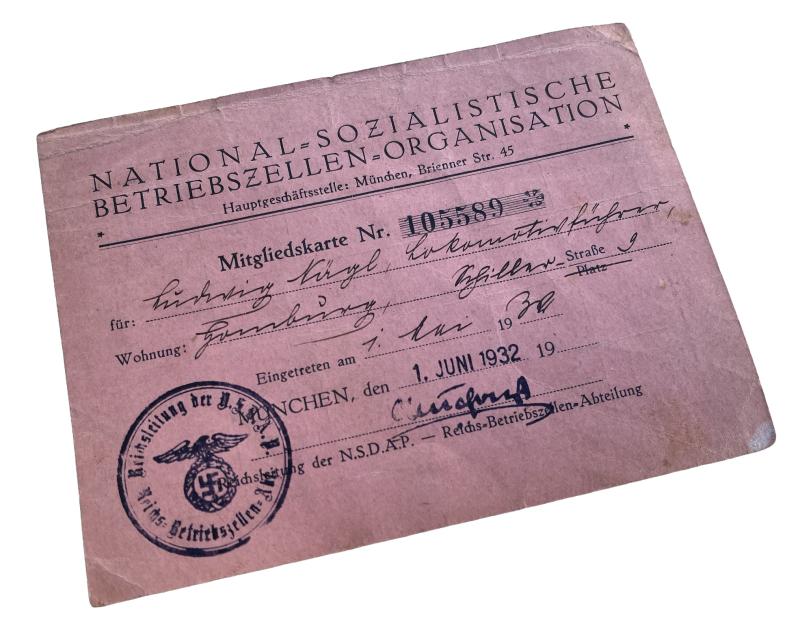 NATIONAL=SOZIALISTISCHE
BETRIEBSZELLEN=ORGANISATION
Hauptgeschäftsstelle: München, Brienner Str. 45
Mitgliedskarte Nr. 105589
für: Ludwig Nägl, Lokomotivführer,
Wohnung: Homburg, Schiller- Straße 9
Platz
Eingetreten am 1. Mai 19
MÜNCHEN, den 1. JUNI 1932 19
Reichsleitung der N.S.D.A.P. — Reichs-Betriebszellen-Abteilung
Reichsleitung der N.S.D.A.P.
Reichs-Betriebszellen-Abt.